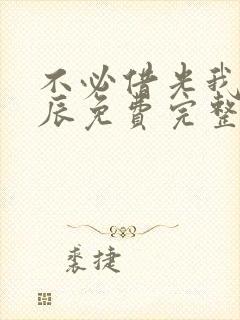 不必借光我
辰免费完整
裘捷